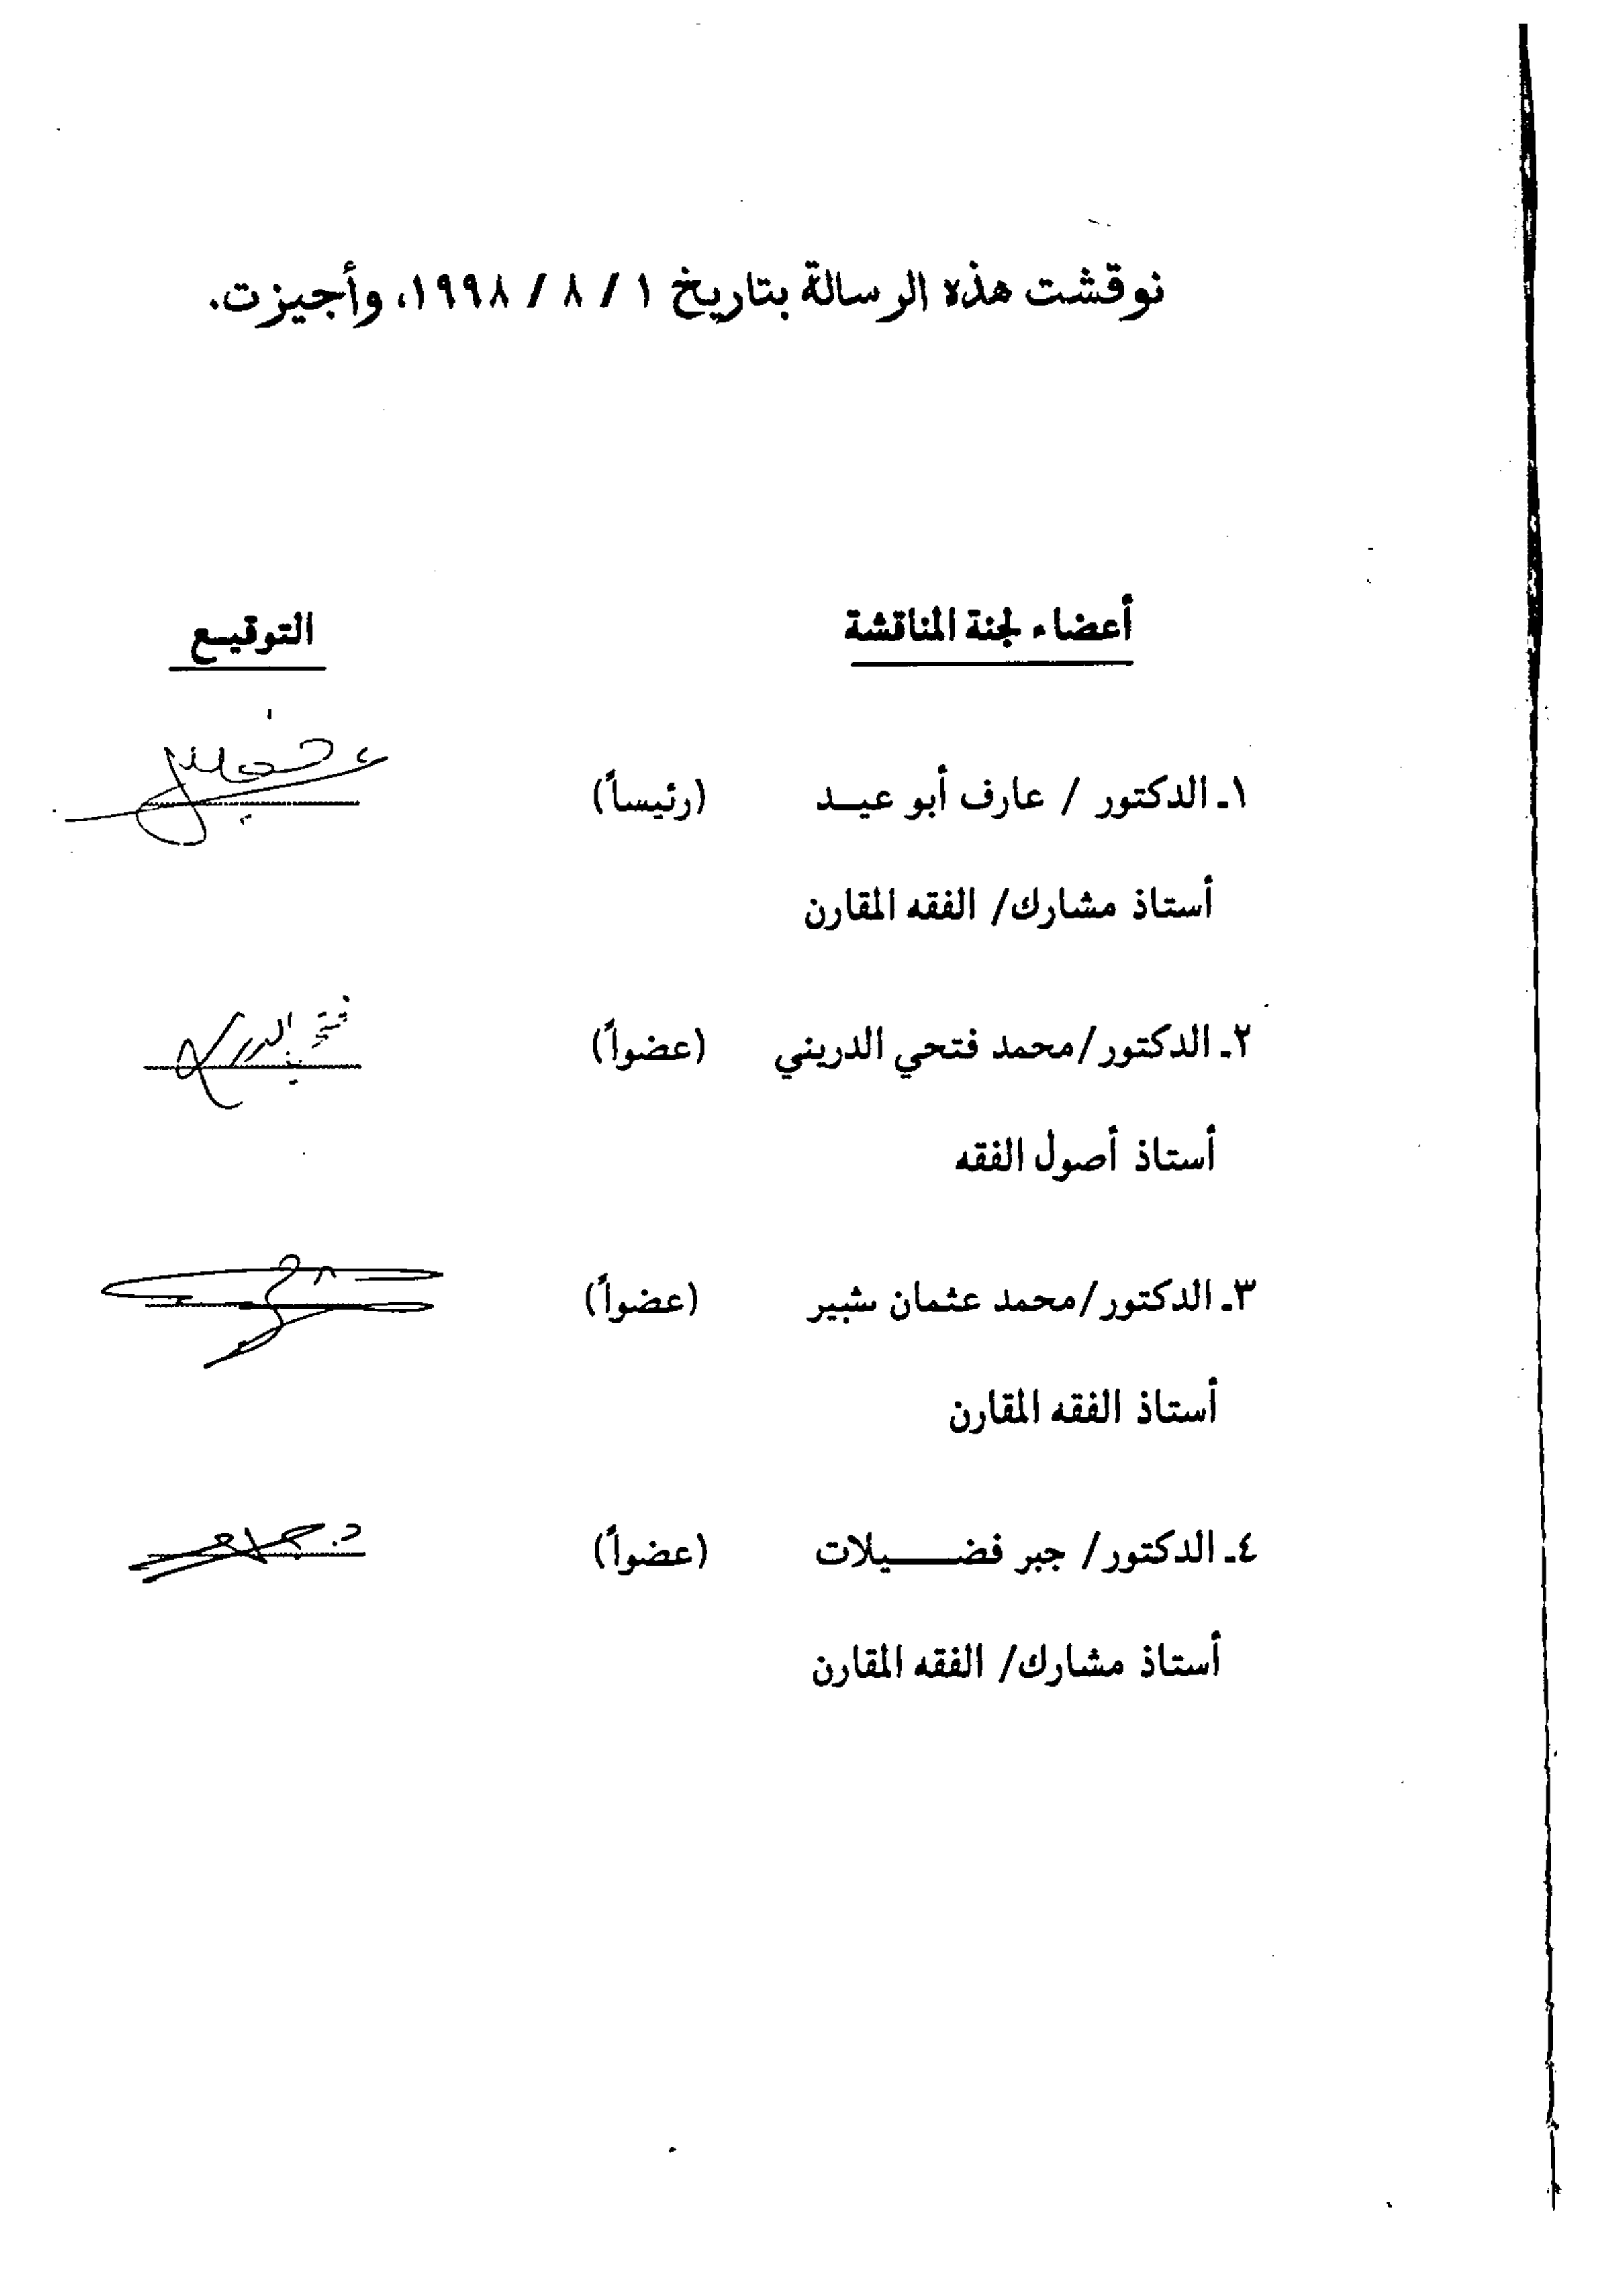 نوقشت هذه الرسالة بتاريخ ١ / ٨ / ١٩٩٨، وأجيزت.
أعضاء لجنة المناقشة التوقيـع
١ـ الدكتور / عارف أبو عيـد (رئيساً)
أستاذ مشارك/ الفقه المقارن
٢ـ الدكتور/محمد فتحي الدريني (عضواً)
أستاذ أصول الفقه
٣ـ الدكتور/محمد عثمان شبير (عضواً)
أستاذ الفقه المقارن
٤ـ الدكتور/ جبر فضـــيلات (عضواً)
أستاذ مشارك/ الفقه المقارن